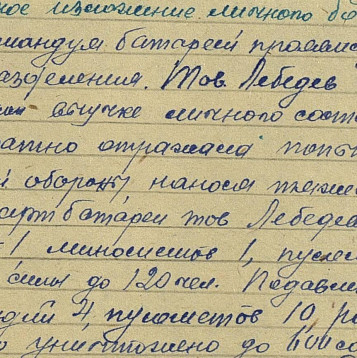 ное изложение личного бо
мандуя батареей проявис
азделения. Тов. Лебедев
выучке личного сост
атно отражала попы
й обороны, нанося тяже
артбатареи тов Лебедев
1 миномётов 1, пулем
силы до 120 чел. Подавле
удий 4, пулеметов 10 ра
о уничтожено до 600 со